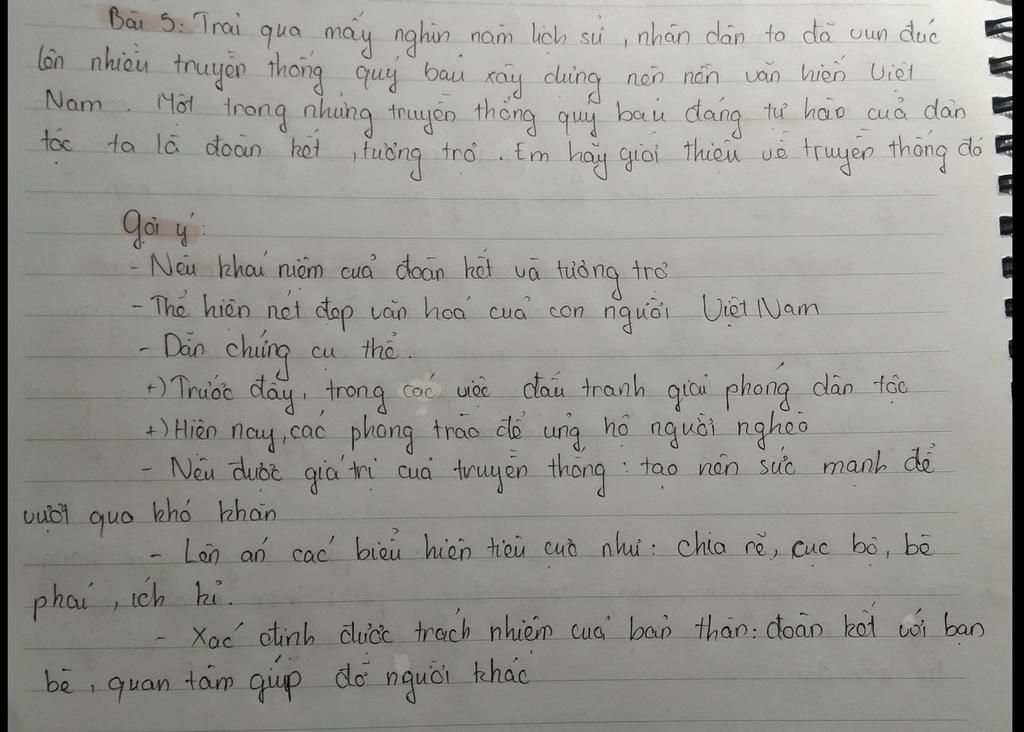 Bài 5: Trải qua mấy nghìn năm lịch sử, nhân dân ta đã vun đúc
lên nhiều truyền thống quý báu xây dựng nên nền văn hiến Việt
Nam. Một trong những truyền thống quý báu đáng tự hào của dân
tộc ta là đoàn kết, tương trợ. Em hãy giới thiệu về truyền thống đó
Gợi ý:
- Nêu khái niệm của đoàn kết và tương trợ
- Thể hiện nét đẹp văn hoá của con người Việt Nam
- Dẫn chứng cụ thể.
+) Trước đây, trong các cuộc đấu tranh giải phóng dân tộc
+) Hiện nay, các phong trào để ủng hộ người nghèo
- Nêu được giá trị của truyền thống: tạo nên sức mạnh để
vượt qua khó khăn
- Lên án các biểu hiện tiêu cực như: chia rẽ, cục bộ, bè
phái, ích kỉ.
- Xác định được trách nhiệm của bản thân: đoàn kết với bạn
bè, quan tâm giúp đỡ người khác